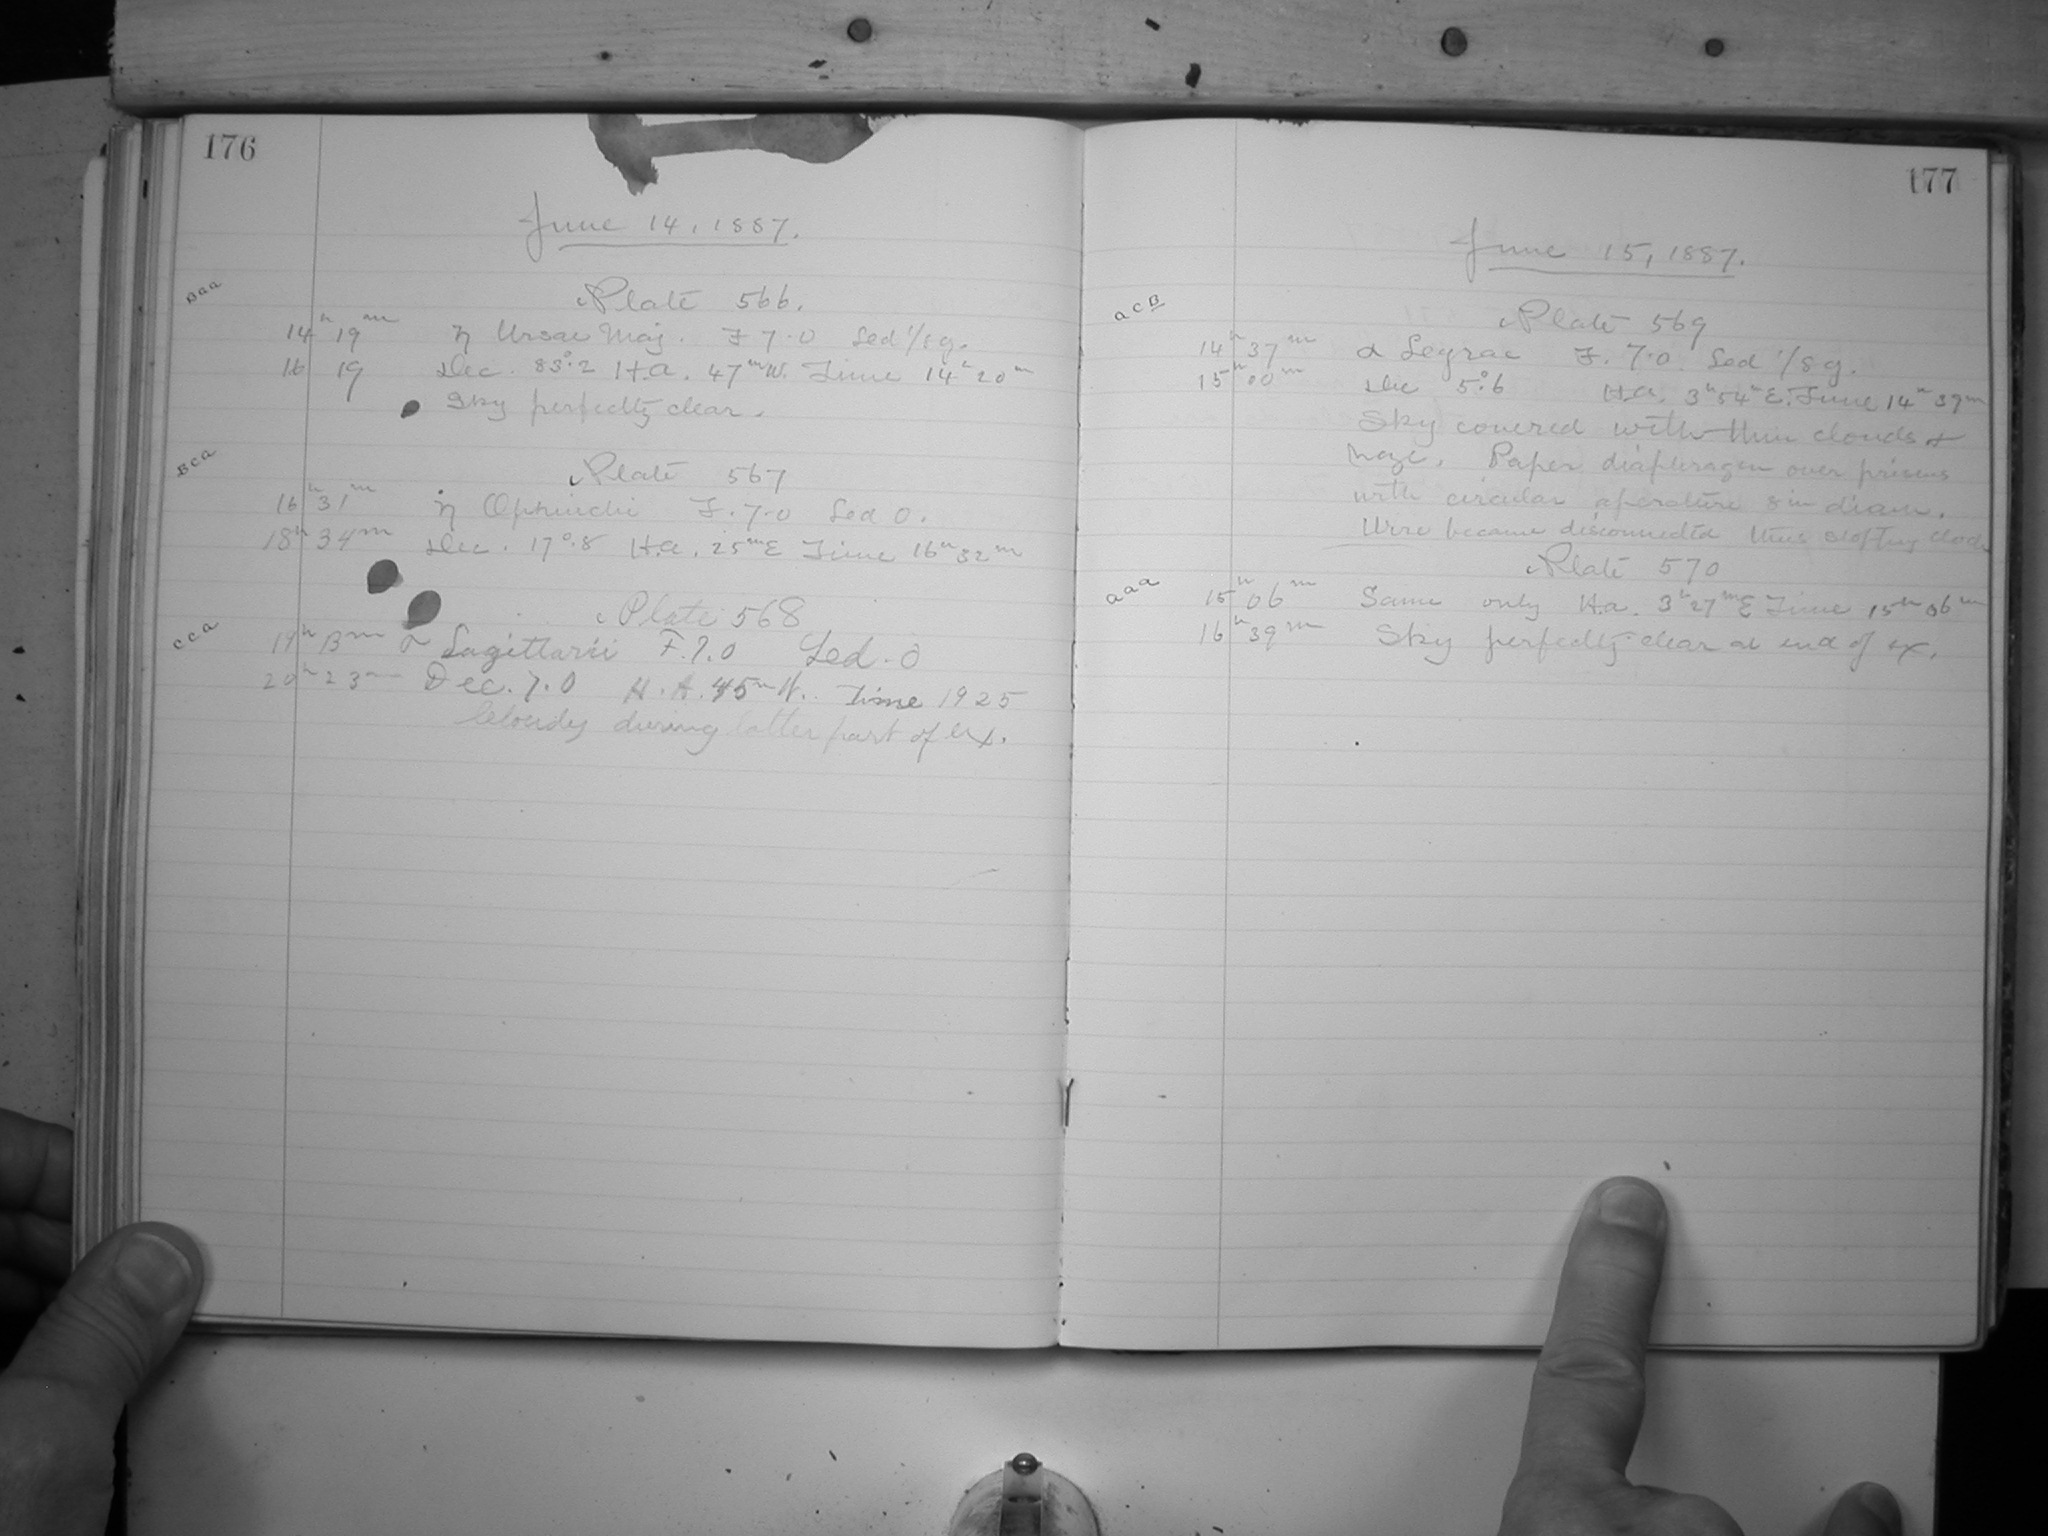 176
June 14, 1887.
Baa
Plate 566.
14h 19m η Ursae Maj. F 7.0 Sed 1/8 g.
16 19 Dec. 83°.2 H.a. 47m W. Time 14h 20m
Sky perfectly clear.
Bca
Plate 567
16h 31m η Ophiuchi F. 7.0 Sed 0.
18h 34m Dec. 17°.8 H.a. 25m E Time 16h 32m
Plate 568
cca
19h 13m σ Sagittarii F. 7.0 Sed. 0
20h 23m Dec. 7.0 H.A. 45m W. Time 19 25
Cloudy during latter part of ex.
177
June 15, 1887.
acB
Plate 569
14h 37m α Legrae F. 7.0 Sed 1/8 g.
15h 00m Dec 5°.6 H.a. 3h 54m E. Time 14h 39m
Sky covered with thin clouds &
haze. Paper diaphragm over prisms
with circular aperature 8 in diam.
Wire became disconnected thus stopping clock
Plate 570
aaa
15h 06m Same only H.a. 3h 27m E Time 15h 06m
16h 39m Sky perfectly clear at end of ex.